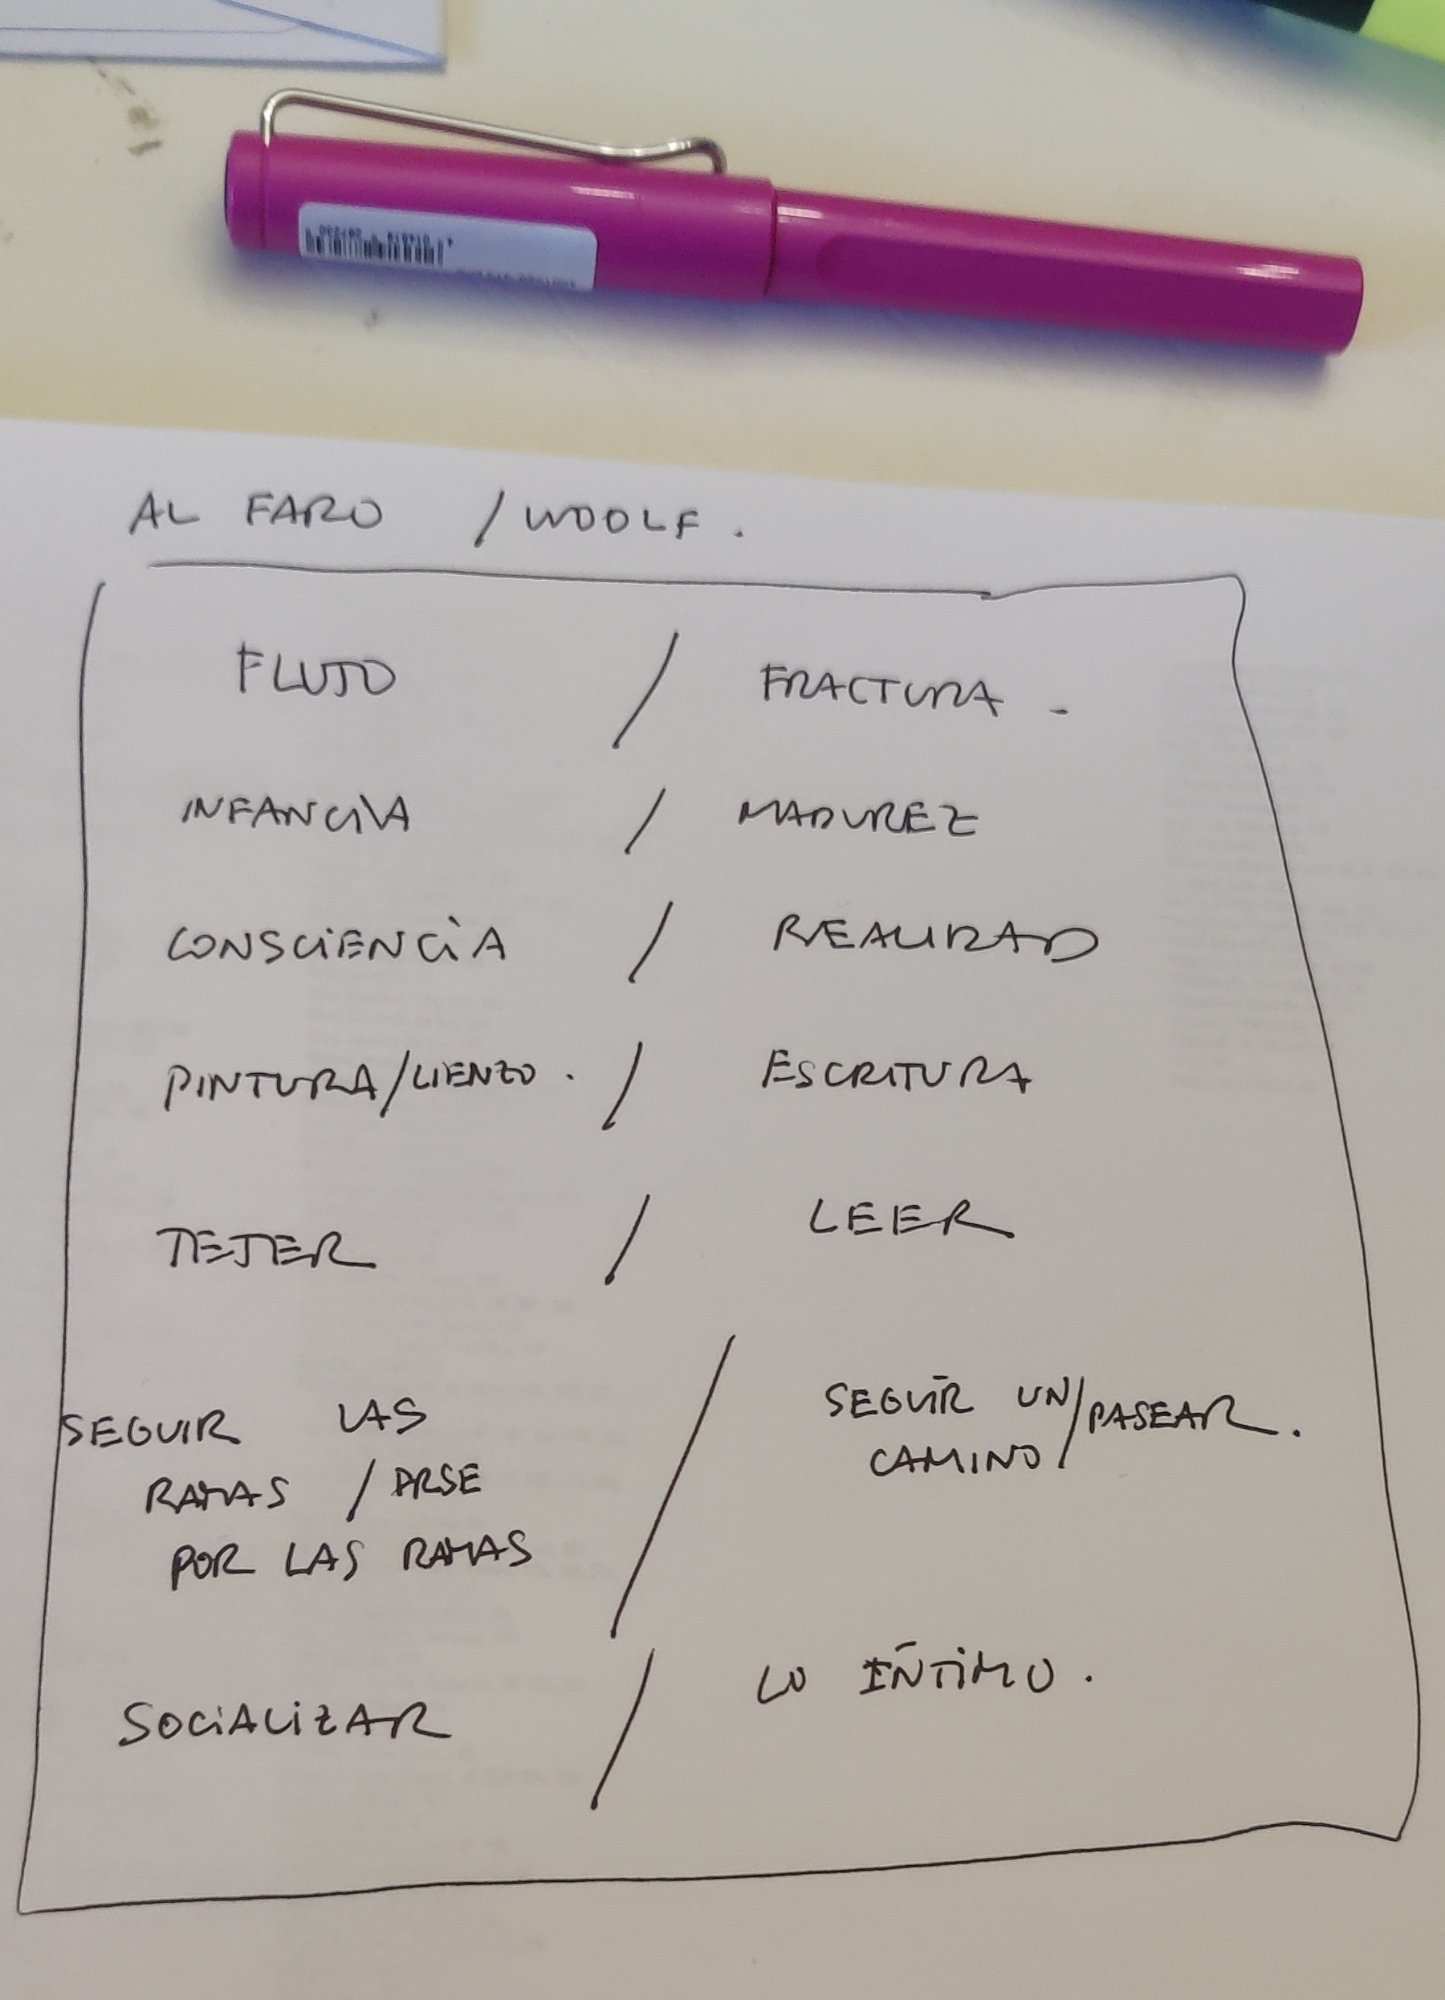 AL FARO / WOOLF.
FLUJO / FRACTURA.
INFANCIA / MADUREZ
CONSCIENCIA / REALIDAD
PINTURA/LIENZO. / ESCRITURA
TEJER / LEER
SEGUIR LAS / SEGUIR UN/PASEAR.
RAMAS / IRSE CAMINO
POR LAS RAMAS
SOCIALIZAR / LO ÍNTIMO.